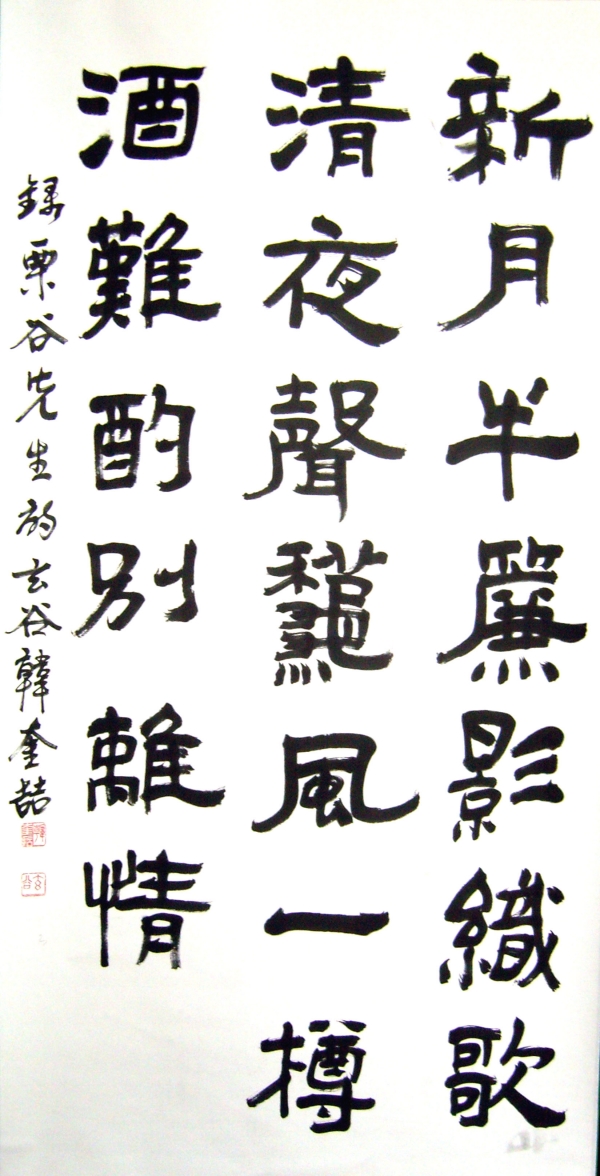 新月半簾影織歌
清夜聲龝風一樽
酒難酌別離情
録栗谷先生韵玄谷韓奎喆
玄谷